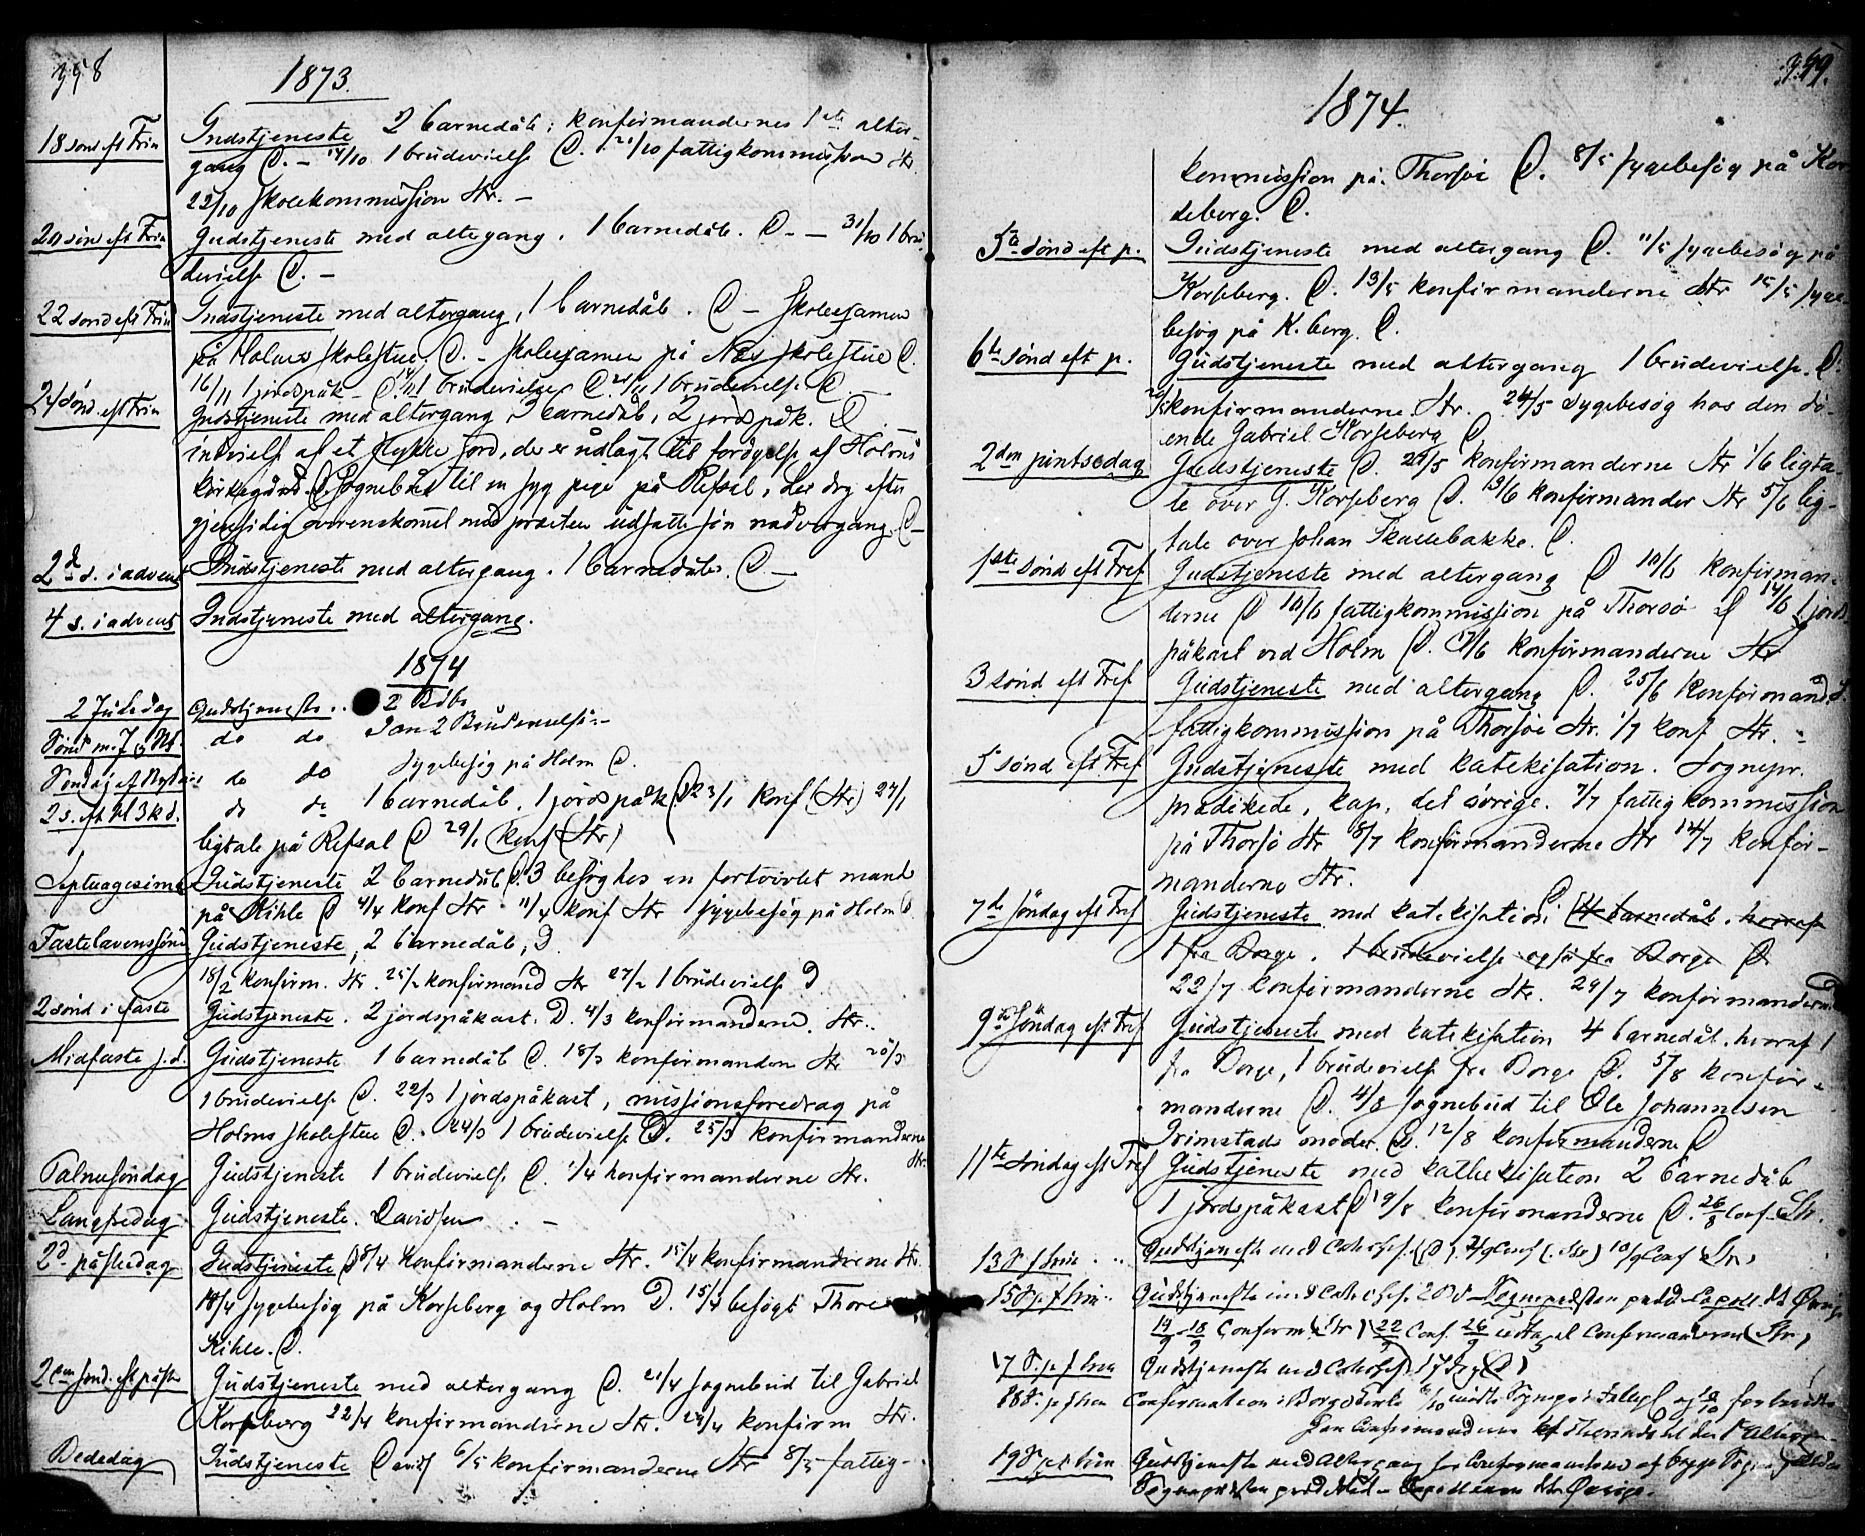 358
1873.
18 sønd eft Trin
Gudstjeneste 2 barnedåb; konfirmandernes 1ste alter-
gang D. – 14/10 1 brudevielse D. 21/10 fattigkommission Str.
22/10 skolekommission Str. –
20 sønd eft Trin
Gudstjeneste med altergang. 1 barnedåb. D. – 31/10 1 bru
devielse D. –
22 sønd eft Trin
Gudstjeneste med altergang, 1 barnedåb. D – Skolexamen
på Holms skolestue. D. – skolexamen på Næs skolestue D.
16/11 1 jordspåk – D. 1 brudevielse D. 21/11 1 brudevielse D
24 sønd. eft Trin
Gudstjeneste med altergang, 3 barnedåb, 2 jordspåk. D
indvielse af et stykke jord, der er udlagt til forøgelse af Holms
kirkegård D. Sognebud til en syg pige på Refsal, der dog efter
gjensidig overenskomst med præsten udsatte sin nadvergang D –
2d s. i advent
Gudstjeneste med altergang. 1 barnedåb. D. –
4 s. i advent
Gudstjeneste med altergang.
1874
2 Juledag
Gudstjeneste .. 2 Bdb.
Sønd m. J og Nt.
do do
Søndag ef Nytår
do do Sygebesøg på Holm D.
2 s. eft H 3 k d.
do do 1 barnedåb. 1 jordspåk D 23/1 Konf (Str) 27/1
ligtale på Refsal D 29/1 (konf Str)
Septuagesima
Gudstjeneste 2 barnedåb D. 3 besøg hos en fortvivlet mand
på Kihle D 4/4 konf Str. 11/4 konf Str sygebesøg på Holm D.
Fastelavenssønd
Gudstjeneste, 2 barnedåb, D.
18/2 konfirm. Str. 25/2 konfirmand Str 27/2 1 brudevielse D
2 sønd i faste
Gudstjeneste. 2 jordspåkast. D. 4/3 konfirmanderne. Str..
Midfaste s.d.
Gudstjeneste 1 barnedåb D. 18/3 konfirmanden Str 20/3
1 brudevielse D. 22/3 1 jordspåkast, missionsforedrag på
Holms skolestue D. 24/3 1 brudevielse D. 25/3 konfirmanderne
Str.
Palmesøndag
Gudstjeneste 1 brudevielse D. 1/4 konfirmanderne Str.
Langfredag
Gudstjeneste. Davidsen. –
2d påskedag
Gudstjeneste D 8/4 konfirmanderne Str. 15/4 konfirmanderne Str.
18/4 sygebesøg på Korseberg og Holm D. 15/4 besøgt Thore
Kihle. D.
2den sønd. eft påske
Gudstjeneste med altergang D. 21/4 sognebud til Gabriel
Korseberg 22/4 konfirmanderne Str. 29/4 konfirm Str.
Bededag
Gudstjeneste Davids 6/5 konfirmanderne Str 8/5 fattig-
359.
1874.
kommission på Thorsøe D. 8/5 sygebesøg på Kor
seberg. D.
5te sønd eft p.
Gudstjeneste med altergang D. 11/5 sygebesøg på
Korseberg. D. 13/5 konfirmanderne Str 15/5 syge
besøg på K.berg. D.
6te sønd eft p.
Gudstjeneste med altergang 1 brudevielse. D.
konfirmanderne Str. 24/5 sygebesøg hos den dø-
ende Gabriel Korseberg D
2den pintsedag
Gudstjeneste D. 27/5 konfirmanderne Str 1/6 ligta-
le over G. Korseberg D. 3/6 konfirmander Str 5/6 lig-
tale over Johan Skallebakke. D.
1ste sønd eft Tref
Gudstjeneste med altergang D 10/6 konfirman-
derne D 10/6 fattigkommission på Thorsø D 14/6 1 jords
påkast ved Holm D. 17/6 konfirmanderne Str
3 sønd eft Tref
Gudstjeneste med altergang D. 25/6 konfirmand D.
fattigkommission på Thorsøe Str. 1/7 konf Str. –
5 sønd eft Tref
Gudstjeneste med katekisation. Sognepr.
prædikede, kap. det øvrige. 7/7 fattigkommission
på Thorsø Str 8/7 konfirmanderne Str 14/7 konfir-
manderne Str.
7de søndag eft Tref
Gudstjeneste med katekisation D (4 barnedåb. hvoraf
1 fra Borge. 1 brudevielse også fra Borge D.
22/7 konfirmanderne Str. 29/7 konfirmanderne D
9de søndag eft Tref
Gudstjeneste med katekisation 4 barnedåb. hvoraf 1
fra Borge, 1 brudevielse fra Borge D. 5/8 konfir-
manderne D. 4/8 sognebud til Ole Johannesen
Grimstads moder. D. 12/8 konfirmanderne D
11te søndag eft Tref
Gudstjeneste med kathekisation 2 barnedåb
1 jordspåkast D 19/8 konfirmanderne D. 26/8 Conf. Str.
13 S. f. trin
Gudstjeneste med Catechis. (D). 2/9 Conf (Str) 10/9 Conf (Str)
15 S. p f trin
Gudstjeneste med Catechis. 2 Bd. Sognepresten præd. Capell. det Øvrige
18/9 Conform (Str) 22/9 Conf. 26/9 Confirmanderne (Str)
17 S. p f trin
Gudstjeneste med Catechis. (D)
18 S. p f trin
Confirmation i Borge Kirke
19 S p f trin
Gudstjeneste med Altergang for Confirmanterne af begge Sogne
Sognepresten prædiked – Capellanen det Øvrige.